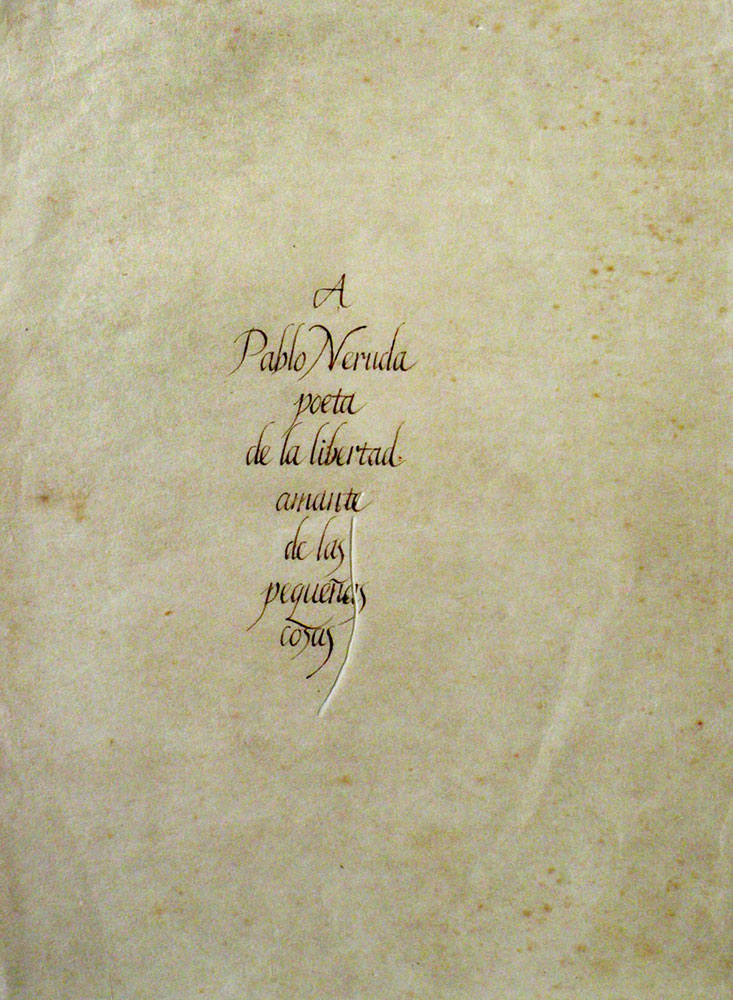 A
Pablo Neruda
poeta
de la libertad
amante
de las
pequeñas
cosas